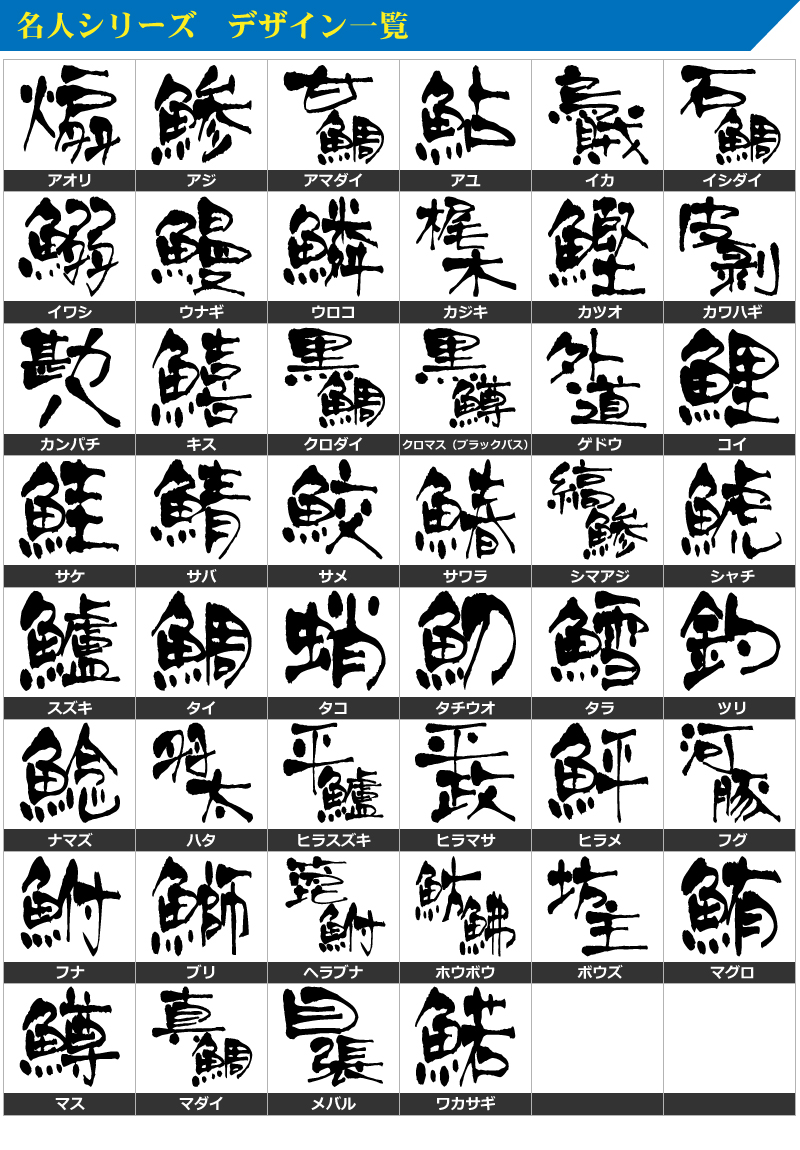 名人シリーズ　デザイン一覧
煽 鯵 甘鯛 鮎 烏賊 石鯛
アオリ アジ アマダイ アユ イカ イシダイ
鰯 鰻 鱗 梶木 鰹 皮剥
イワシ ウナギ ウロコ カジキ カツオ カワハギ
勘八 鱚 黒鯛 黒鱒 外道 鯉
カンパチ キス クロダイ クロマス（ブラックバス） ゲドウ コイ
鮭 鯖 鮫 鰆 縞鯵 鯱
サケ サバ サメ サワラ シマアジ シャチ
鱸 鯛 蛸 魛 鱈 釣
スズキ タイ タコ タチウオ タラ ツリ
鯰 羽太 平鱸 平政 鮃 河豚
ナマズ ハタ ヒラスズキ ヒラマサ ヒラメ フグ
鮒 鰤 箆鮒 魴鮄 坊主 鮪
フナ ブリ ヘラブナ ホウボウ ボウズ マグロ
鱒 真鯛 目張 鰙
マス マダイ メバル ワカサギ